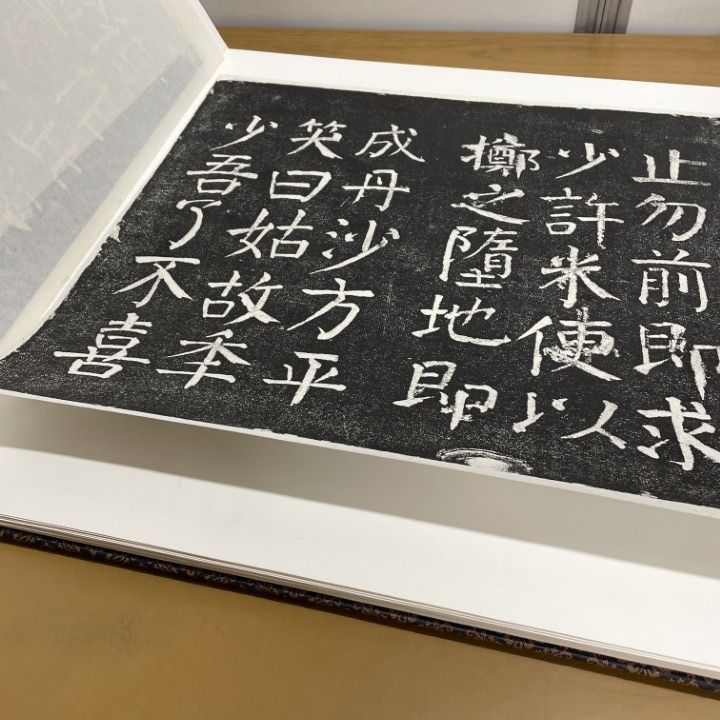 止勿前即求
少許米使以
擲之墮地即
成丹沙方平
笑曰姑故年
少吾了不喜